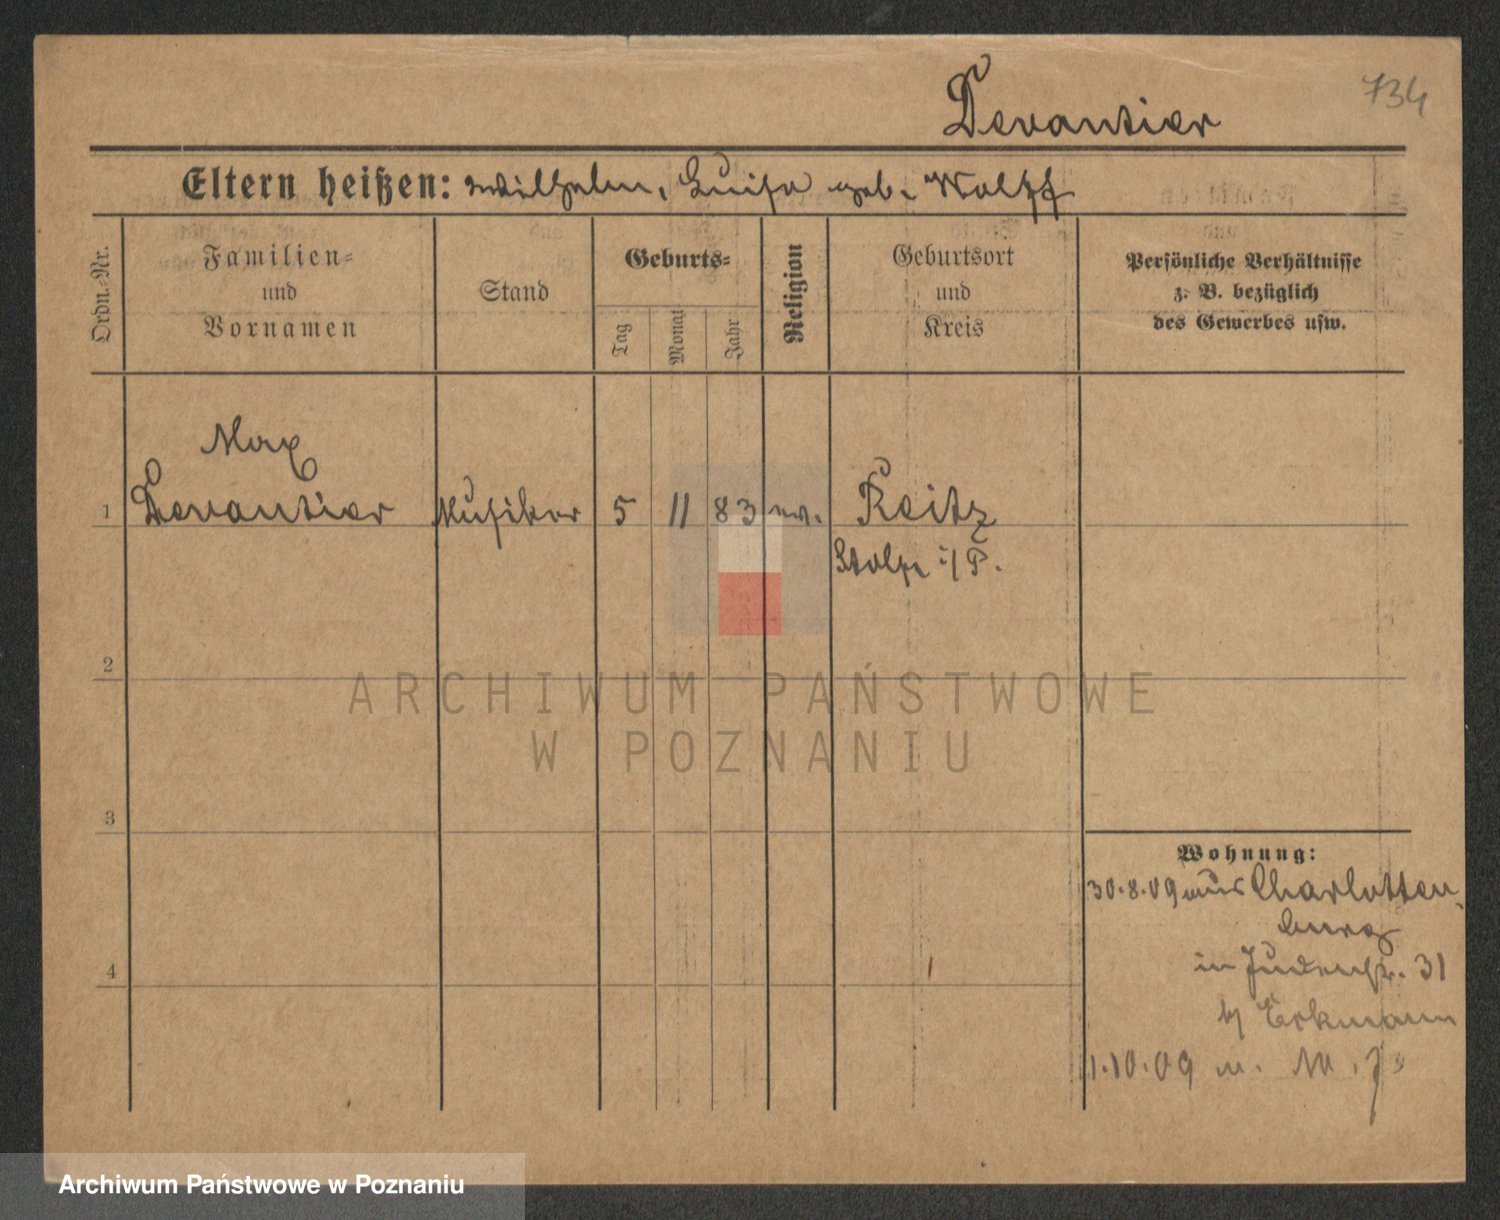 734
Devantier
Eltern heißen: Wilhelm, Luise geb. Wolff
Ordn.-Nr.
Familien-
und
Vornamen
Stand
Geburts-
Tag
Monat
Jahr
Religion
Geburtsort
und
Kreis
Persönliche Verhältnisse
z. B. bezüglich
des Gewerbes usw.
Max
1 Devantier Musiker 5 11 83 ev. Reitz
Stolp i/P.
2
3
4
Wohnung:
30.8.09 aus Charlotten
burg
in Judenstr. 31
b/ Eckmann
1.10.09 n.
ARCHIWUM PAŃSTWOWE
W POZNANIU
Archiwum Państwowe w Poznaniu